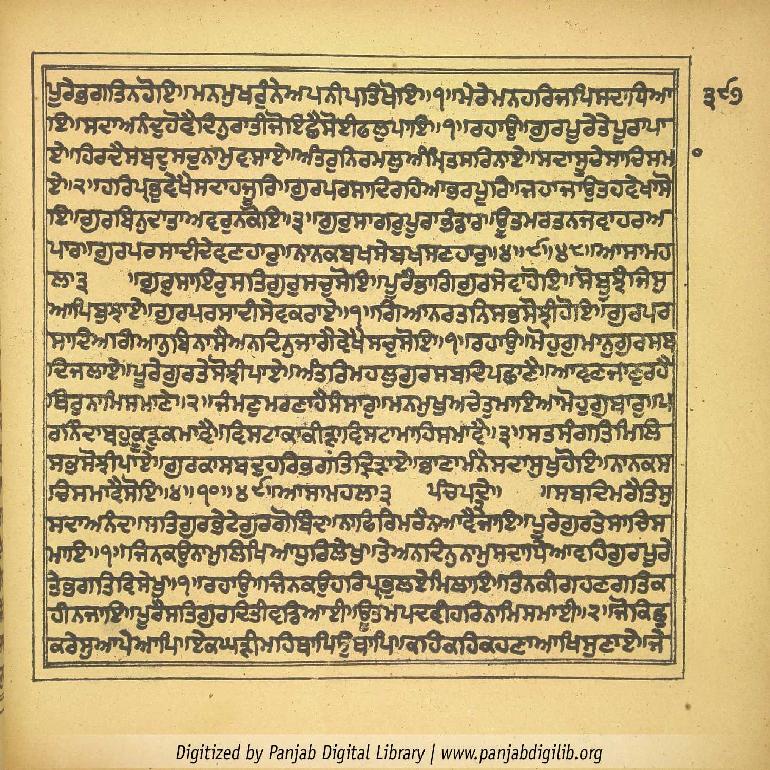 ਪੂਰੇਭਗਤਿਨਹੋਇ॥ਮਨਮੁਖਰੁੰਨੇਅਪਨੀਪਤਿਖੋਇ॥੧॥ਮੇਰੇਮਨਹਰਿਜਪਿਸਦਾਧਿਆ
ਇ॥ਸਦਾਅਨੰਦੁਹੋਵੈਦਿਨੁਰਾਤੀਜੋਇਛੈਸੋਈਫਲੁਪਾਇ॥੧॥ਰਹਾਉ॥ਗੁਰਪੂਰੇਤੇਪੂਰਾਪਾ
ਏ॥ਹਿਰਦੈਸਬਦੁਸਚੁਨਾਮੁਵਸਾਏ॥ਅੰਤਰੁਨਿਰਮਲੁਅੰਮ੍ਰਿਤਸਰਿਨਾਏ॥ਸਦਾਸੂਚੇਸਾਚਿਸਮ
ਏ॥੨॥ਹਰਿਪ੍ਰਭੁਵੇਖੈਸਦਾਹਜੂਰਿ॥ਗੁਰਪਰਸਾਦਿਰਹਿਆਭਰਪੂਰਿ॥ਜਹਾਜਾਉਤਹਵੇਖਾਸੋ
ਇ॥ਗੁਰਬਿਨੁਦਾਤਾਅਵਰੁਨਕੋਇ॥੩॥ਗੁਰੁਸਾਗਰੁਪੂਰਾਭੰਡਾਰ॥ਊਤਮਰਤਨਜਵਾਹਰਅ
ਪਾਰ॥ਗੁਰਪਰਸਾਦੀਦੇਵਣਹਾਰੁ॥ਨਾਨਕਬਖਸੇਬਖਸਣਹਾਰੁ॥੪॥੯॥੪੮॥ਆਸਾਮਹ
ਲਾ੩ ॥ਗੁਰੁਸਾਇਰੁਸਤਿਗੁਰੁਸਚੁਸੋਇ॥ਪੂਰੈਭਾਗਿਗੁਰਸੇਵਾਹੋਇ॥ਸੋਬੂਝੈਜਿਸੁ
ਆਪਿਬੁਝਾਏ॥ਗੁਰਪਰਸਾਦੀਸੇਵਕਰਾਏ॥੧॥ਗਿਆਨਰਤਨਿਸਭਸੋਝੀਹੋਇ॥ਗੁਰਪਰ
ਸਾਦਿਅਗਿਆਨੁਬਿਨਾਸੈਅਨਦਿਨੁਜਾਗੈਵੇਖੈਸਚੁਸੋਇ॥੧॥ਰਹਾਉ॥ਮੋਹੁਗੁਮਾਨੁਗੁਰਸਬ
ਦਿਜਲਾਏ॥ਪੂਰੇਗੁਰਤੇਸੋਝੀਪਾਏ॥ਅੰਤਰਿਮਹਲੁਗੁਰਸਬਦਿਪਛਾਣੈ॥ਆਵਣਜਾਣੁਰਹੈ
ਥਿਰੁਨਾਮਿਸਮਾਣੇ॥੨॥ਜੰਮਣੁਮਰਣਾਹੈਸੰਸਾਰੁ॥ਮਨਮੁਖੁਅਚੇਤੁਮਾਇਆਮੋਹੁਗੁਬਾਰੁ॥ਪ
ਰਨਿੰਦਾਬਹੁਕੂੜੁਕਮਾਵੈ॥ਵਿਸਟਾਕਾਕੀੜਾਵਿਸਟਾਮਾਹਿਸਮਾਵੈ॥੩॥ਸਤਸੰਗਤਿਮਿਲਿ
ਸਭਸੋਝੀਪਾਏ॥ਗੁਰਕਾਸਬਦੁਹਰਿਭਗਤਿਦ੍ਰਿੜਾਏ॥ਭਾਣਾਮੰਨੇਸਦਾਸੁਖੁਹੋਇ॥ਨਾਨਕਸ
ਚਿਸਮਾਵੈਸੋਇ॥੪॥੧੦॥੪੯॥ਆਸਾਮਹਲਾ੩ ਪੰਚਪਦੇ॥ ॥ਸਬਦਿਮਰੈਤਿਸੁ
ਸਦਾਅਨੰਦ॥ਸਤਿਗੁਰਭੇਟੇਗੁਰਗੋਬਿੰਦ॥ਨਾਫਿਰਿਮਰੈਨਆਵੈਜਾਇ॥ਪੂਰੇਗੁਰਤੇਸਾਚਿਸ
ਮਾਇ॥੧॥ਜਿਨਕਉਨਾਮੁਲਿਖਿਆਧੁਰਿਲੇਖੁ॥ਤੇਅਨਦਿਨੁਨਾਮੁਸਦਾਧਿਆਵਹਿਗੁਰਪੂਰੇ
ਤੇਭਗਤਿਵਿਸੇਖੁ॥੧॥ਰਹਾਉ॥ਜਿਨਕਉਹਰਿਪ੍ਰਭੁਲਏਮਿਲਾਇ॥ਤਿਨਕੀਗਹਣਗਤਿਕ
ਹੀਨਜਾਇ॥ਪੂਰੈਸਤਿਗੁਰਦਿਤੀਵਡਿਆਈ॥ਊਤਮਪਦਵੀਹਰਿਨਾਮਿਸਮਾਈ॥੨॥ਜੋਕਿਛੁ
ਕਰੇਸੁਆਪੇਆਪਿ॥ਏਕਘੜੀਮਹਿਥਾਪਿਉਥਾਪਿ॥ਕਹਿਕਹਿਕਹਣਾਆਖਿਸੁਣਾਏ॥ਜੇ
੩੯੭
Digitized by Panjab Digital Library | www.panjabdigilib.org